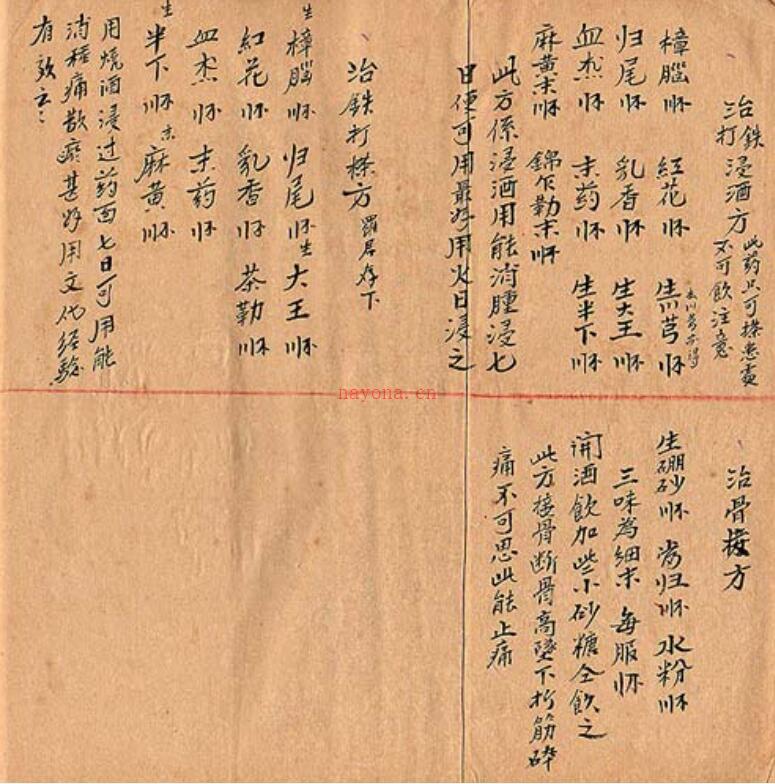 治鉄打浸酒方 此药只可搽患處
不可飲注意
樟腦 紅花 生川芎
归尾 乳香 生大王
血杰 末药 生半下
麻黄末 錦乍勒末
此方係浸酒用能消腫浸七
日便可用最好用火日浸之
治鉄打搽方
生樟腦 归尾 生大王
紅花 乳香 茶勒
血杰 末药
生半下 麻黄
用燒酒浸过药面七日可用能
消種痛散瘀甚好用文代经驗
有效云々
治骨接方
生硼砂 当归 水粉
三味為細末 每服
開酒飲加些小砂糖仝飲之
此方接骨断骨高墜下折筋碎
痛不可思此能止痛
nayona.cn